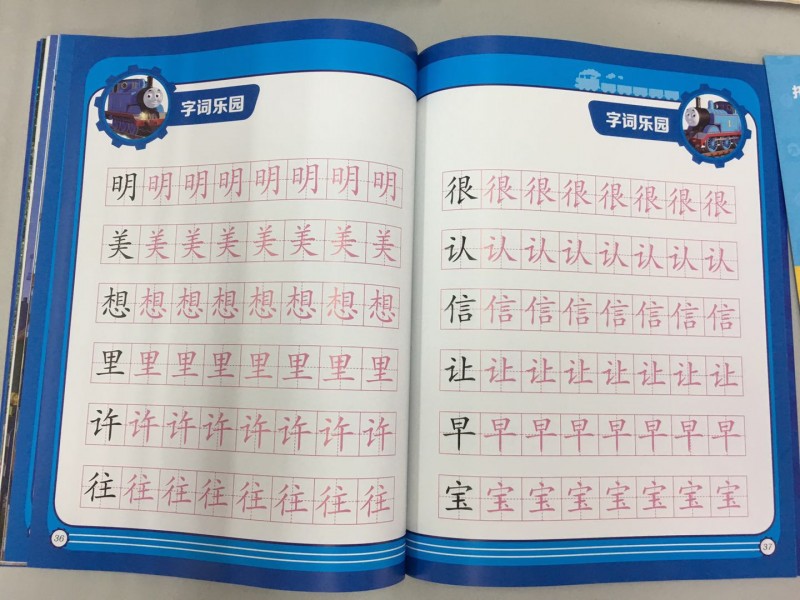 字词乐园
明明明明明明明明
美美美美美美美美
想想想想想想想想
里里里里里里里里
许许许许许许许许
往往往往往往往往
36
字词乐园
很很很很很很很很
认认认认认认认认
信信信信信信信信
让让让让让让让让
早早早早早早早早
宝宝宝宝宝宝宝宝
37